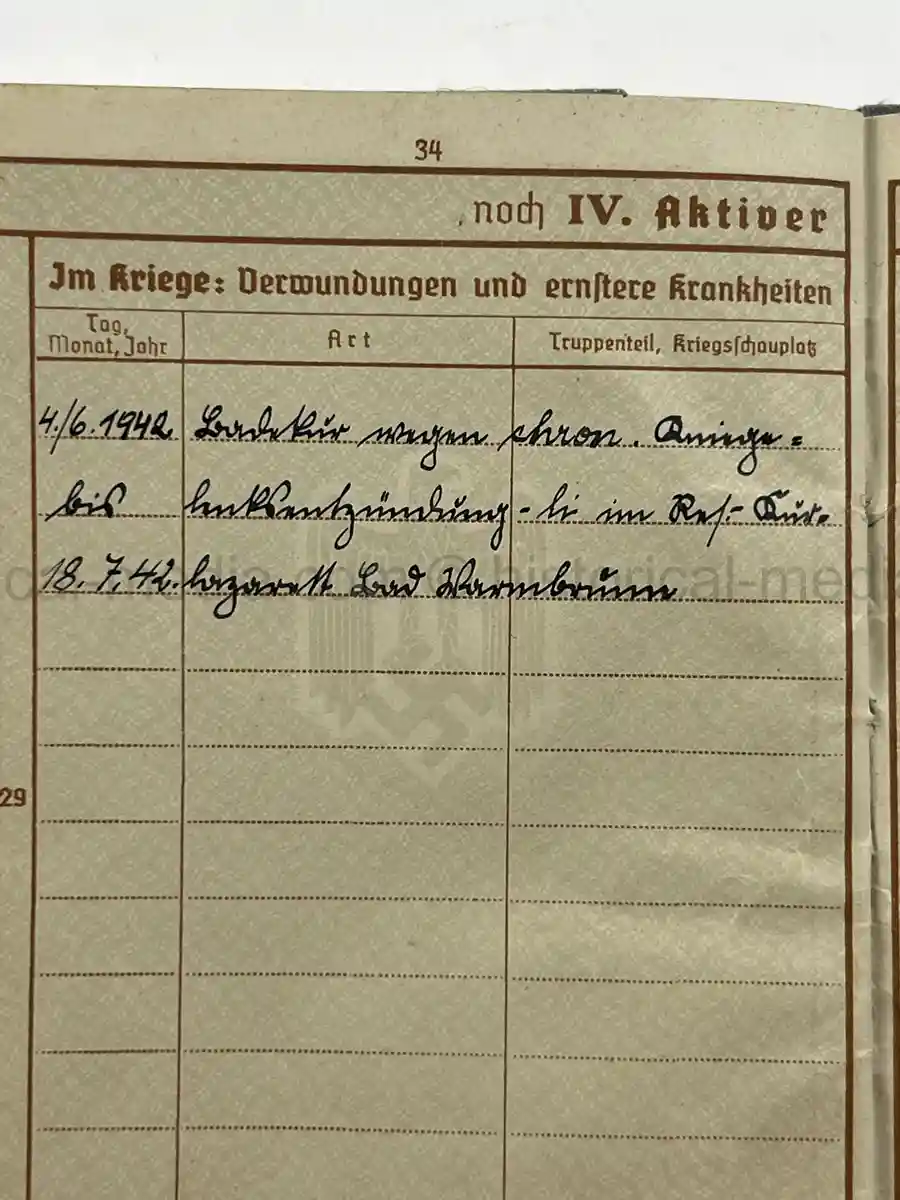 34
noch IV. Aktiver
Im Kriege: Verwundungen und ernstere Krankheiten
Tag,
Monat, Jahr
Art
Truppenteil, Kriegsschauplatz
4./6. 1942 Badekur wegen chron. Kniege=
bis lenksentzündung - li im Res.- Kur-
18. 7. 42. lazarett Bad Warmbrunn
29